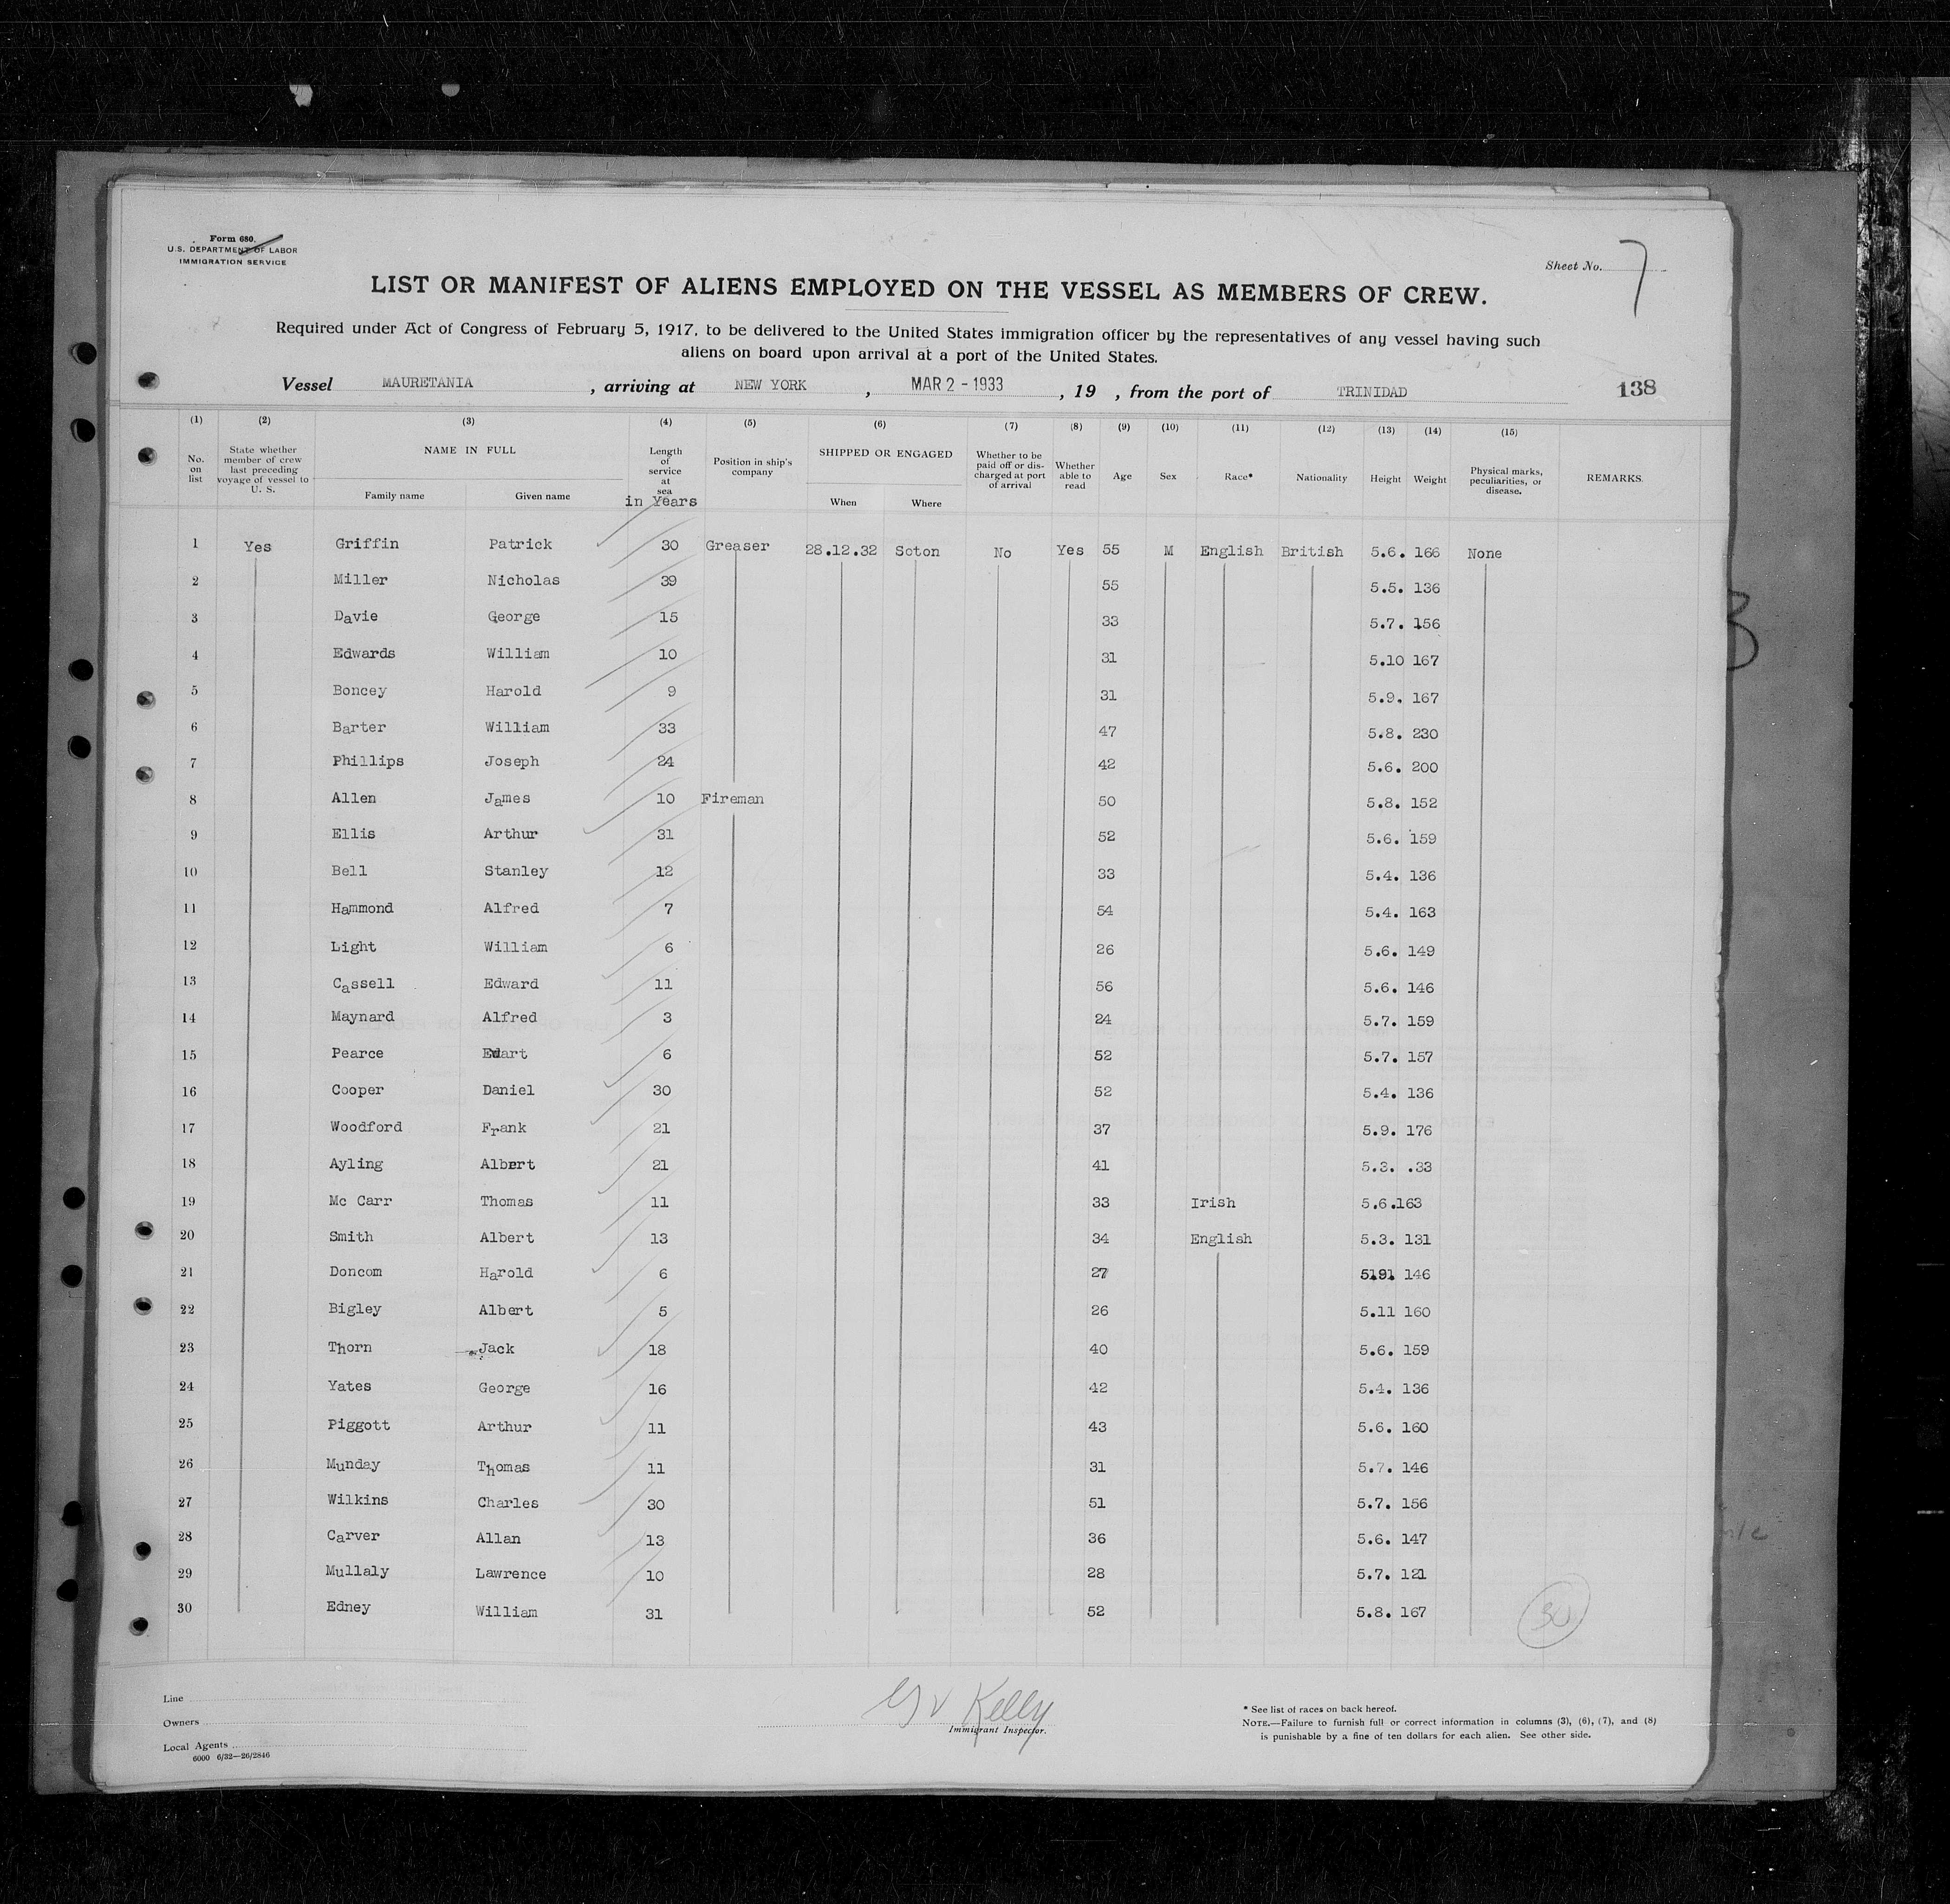 Form 680.
U.S. DEPARTMENT OF LABOR
IMMIGRATION SERVICE
Sheet No. 7
LIST OR MANIFEST OF ALIENS EMPLOYED ON THE VESSEL AS MEMBERS OF CREW.
Required under Act of Congress of February 5, 1917, to be delivered to the United States immigration officer by the representatives of any vessel having such
aliens on board upon arrival at a port of the United States.
Vessel MAURETANIA, arriving at NEW YORK, MAR 2 - 1933, 19 , from the port of TRINIDAD 138
(1) (2) (3) (4) (5) (6) (7) (8) (9) (10) (11) (12) (13) (14) (15)
No. on list State whether member of crew last preceding voyage of vessel to U. S. NAME IN FULL Family name Given name Length of service at sea in Years Position in ship's company SHIPPED OR ENGAGED When Where Whether to be paid off or discharged at port of arrival Whether able to read Age Sex Race* Nationality Height Weight Physical marks, peculiarities, or disease. REMARKS.
1 Yes Griffin Patrick 30 Greaser 28.12.32 Soton No Yes 55 M English British 5.6. 166 None
2 Miller Nicholas 39 55 5.5. 136
3 Davie George 15 33 5.7. 156
4 Edwards William 10 31 5.10 167
5 Boncey Harold 9 31 5.9. 167
6 Barter William 33 47 5.8. 230
7 Phillips Joseph 24 42 5.6. 200
8 Allen James 10 Fireman 50 5.8. 152
9 Ellis Arthur 31 52 5.6. 159
10 Bell Stanley 12 33 5.4. 136
11 Hammond Alfred 7 54 5.4. 163
12 Light William 6 26 5.6. 149
13 Cassell Edward 11 56 5.6. 146
14 Maynard Alfred 3 24 5.7. 159
15 Pearce 6 52 5.7. 157
16 Cooper Daniel 30 52 5.4. 136
17 Woodford Frank 21 37 5.9. 176
18 Ayling Albert 21 41 5.3. .33
19 Mc Carr Thomas 11 33 Irish 5.6.163
20 Smith Albert 13 34 English 5.3. 131
21 Doncom Harold 6 27 146
22 Bigley Albert 5 26 5.11 160
23 Thorn Jack 18 40 5.6. 159
24 Yates George 16 42 5.4. 136
25 Piggott Arthur 11 43 5.6. 160
26 Munday Thomas 11 31 5.7. 146
27 Wilkins Charles 30 51 5.7. 156
28 Carver Allan 13 36 5.6. 147
29 Mullaly Lawrence 10 28 5.7. 121
30 Edney William 31 52 5.8. 167
30
Line
Owners
Local Agents
6000 6/32—26/2846
Kelly
Immigrant Inspector.
* See list of races on back hereof.
NOTE.—Failure to furnish full or correct information in columns (3), (6), (7), and (8)
is punishable by a fine of ten dollars for each alien. See other side.